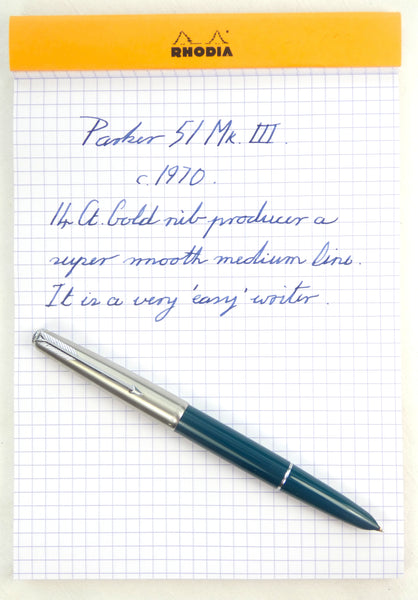 RHODIA
Parker 51 Mk. III.
c.1970.
14 Ct. Gold nib produces a
super smooth medium line.
It is a very 'easy' writer.